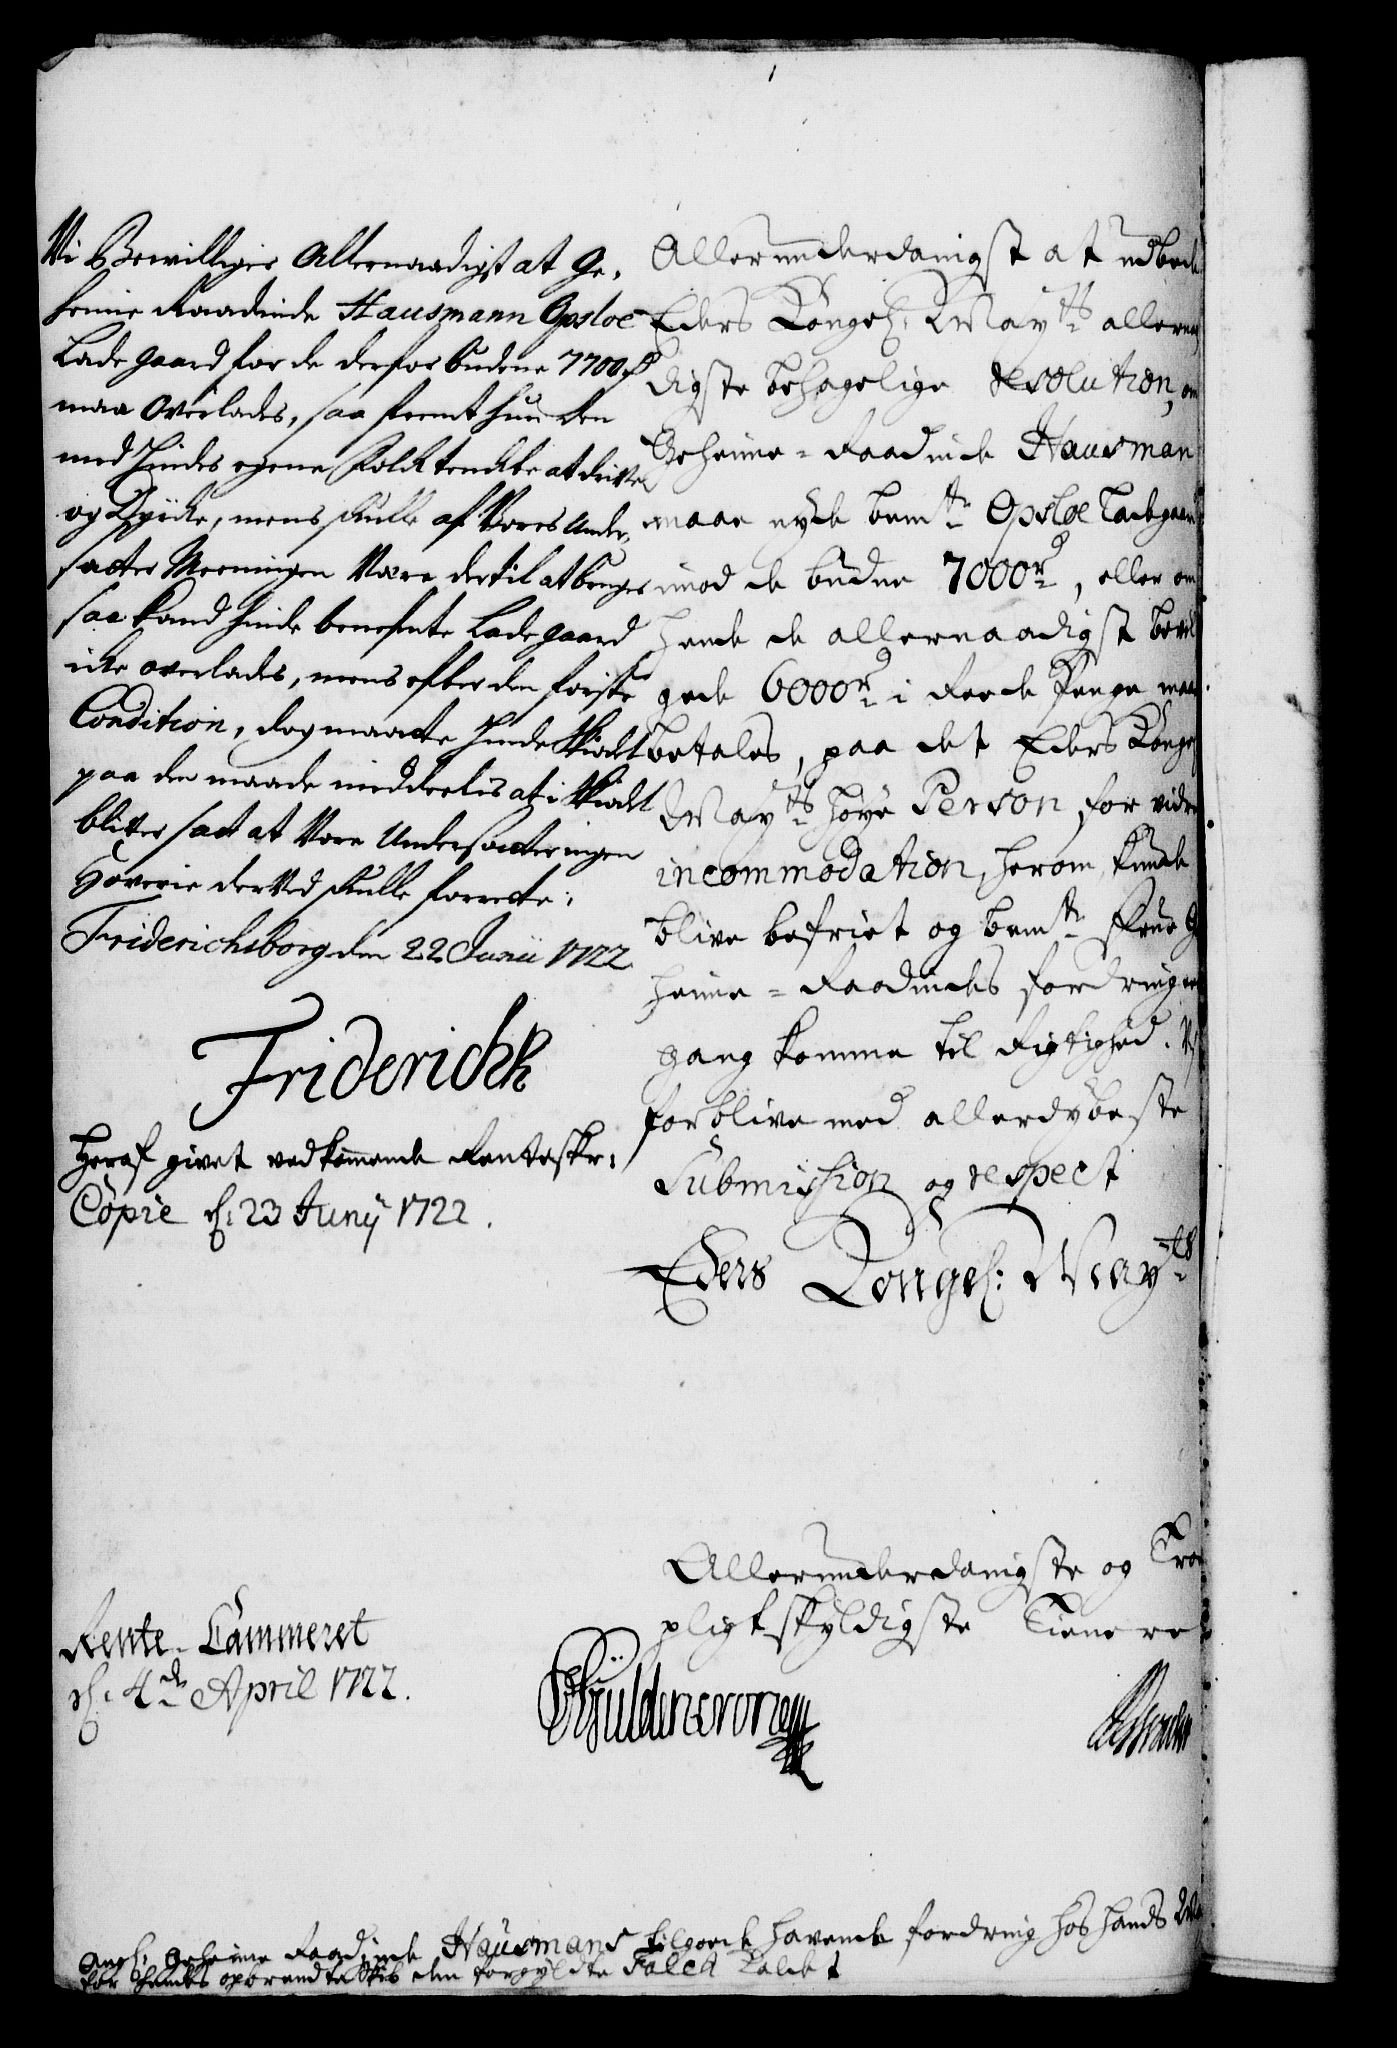 Vi Bewilliger Allernaadigst at Ge,
heime Raadinde Hausmann Opsloe
Ladegaard for de derfor budene 7700 rd
maa Overlades, saa fremt hun den
med hindes egene Folck tenckte at drive
og Dyrcke, mens skulle af Vores Under,
satter Meeningen Være dertil at bruges
saa kand hinde benefnte Ladegaard
icke overlades, mens efter den første
Condition, dog maatte hinde Skiødet
paa den maade meddeelis at i Skiødet
bliver sat at Vore Undersaatter ingen
Hoverie der ved skulle forrette.
Friderichsborg den 22 Junii 1722
Friderich R
Heraf givet vedkommende Renteskr:
Copie d: 23 Junij 1722.
Allerunderdanigst at udbede
Eders Kongel: May.ts allernaa
digste behagelige resolution, om
Geheime-Raadinde Hausman
maae nyde bem.te Opsloe Ladegaard
imod de budne 7000 rd, eller om
hende de allernaadigst bevil
gede 6000 rd i Reede Penge maae
betales, paa det Eders Kongel
May.ts høye Person, for vidre
incommodation, herom kunde
blive befriet og bem.te Frue Ge
heime-Raadindes fordring en
gang komme til Rigtighed. Vj
forblive med allerdybeste
Submission og respect
Eders Kongel: May.ts
Allerunderdanigste og Troe
pligtskyldigste Tienere
Rente-Cammeret
d: 4.de April 1722.
Güldencrone
Ang: Geheime Raadinde Hausmans tilgoede havende fordring hos hands May
for hendes opbrendte Skib den forgyldte Falck kaldet